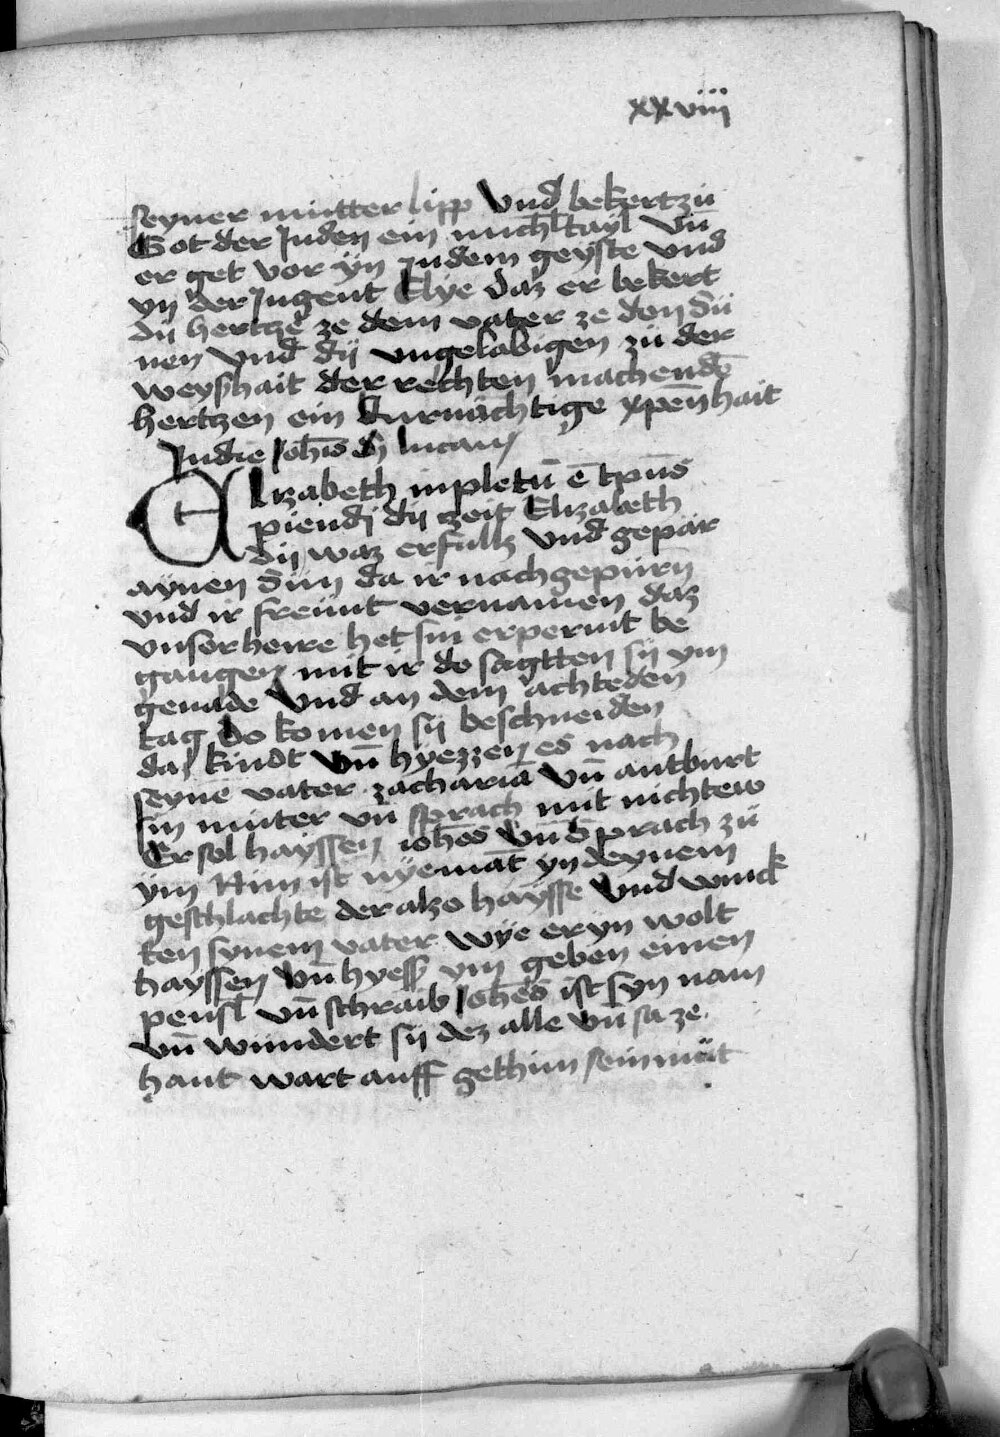 xxviii
seyner mutter lipp Vnd bekert zü
Got der Juden ein michl tayl Vn̄
er get vor yn Jn dem geyste vnd
yn der Jugent Elye daz er bekert
dü hertzē ze dem vater ze den sü
nen Vnd dÿ vngelabigen zü der
weyshait der rechten machend̄
hertzen ein durnächtige xpēnhait
Jn die Joh̄is Lucam
Elizabeth inpletū ē tp̄us
piendj dÿ zeit Elizabeth
dÿ waz erfullz Vnd gepar
aynen Sün da ir nachgepürn̄
vnd ir freünt vernamen daz
vnser herre het sin erpermt be
gangen mit ir do sagtten sÿ ym
genade Vnd an dem achteden
tag Do komen sÿ beschneiden
daz kindt Vn̄ hyezzen es nach
seynē vater zacharia Vn̄ antburt
sin muter vn̄ sprach mit nichtew
Er sol hayssen ioh̄es Vn̄ Sprach zü
ÿm Nim ist nÿemāt yn deynem
geschlachte der alzo haÿsse Vnd winck
ten synem vater wÿe er yn wolt
hayssen Vn̄ hyess ym geben einen
pensl Vn̄ schraib Joh̄es ist syn nam
vn̄ wundert sÿ dez alle Vn̄ sa ze
hant wart auff gethun sein müt